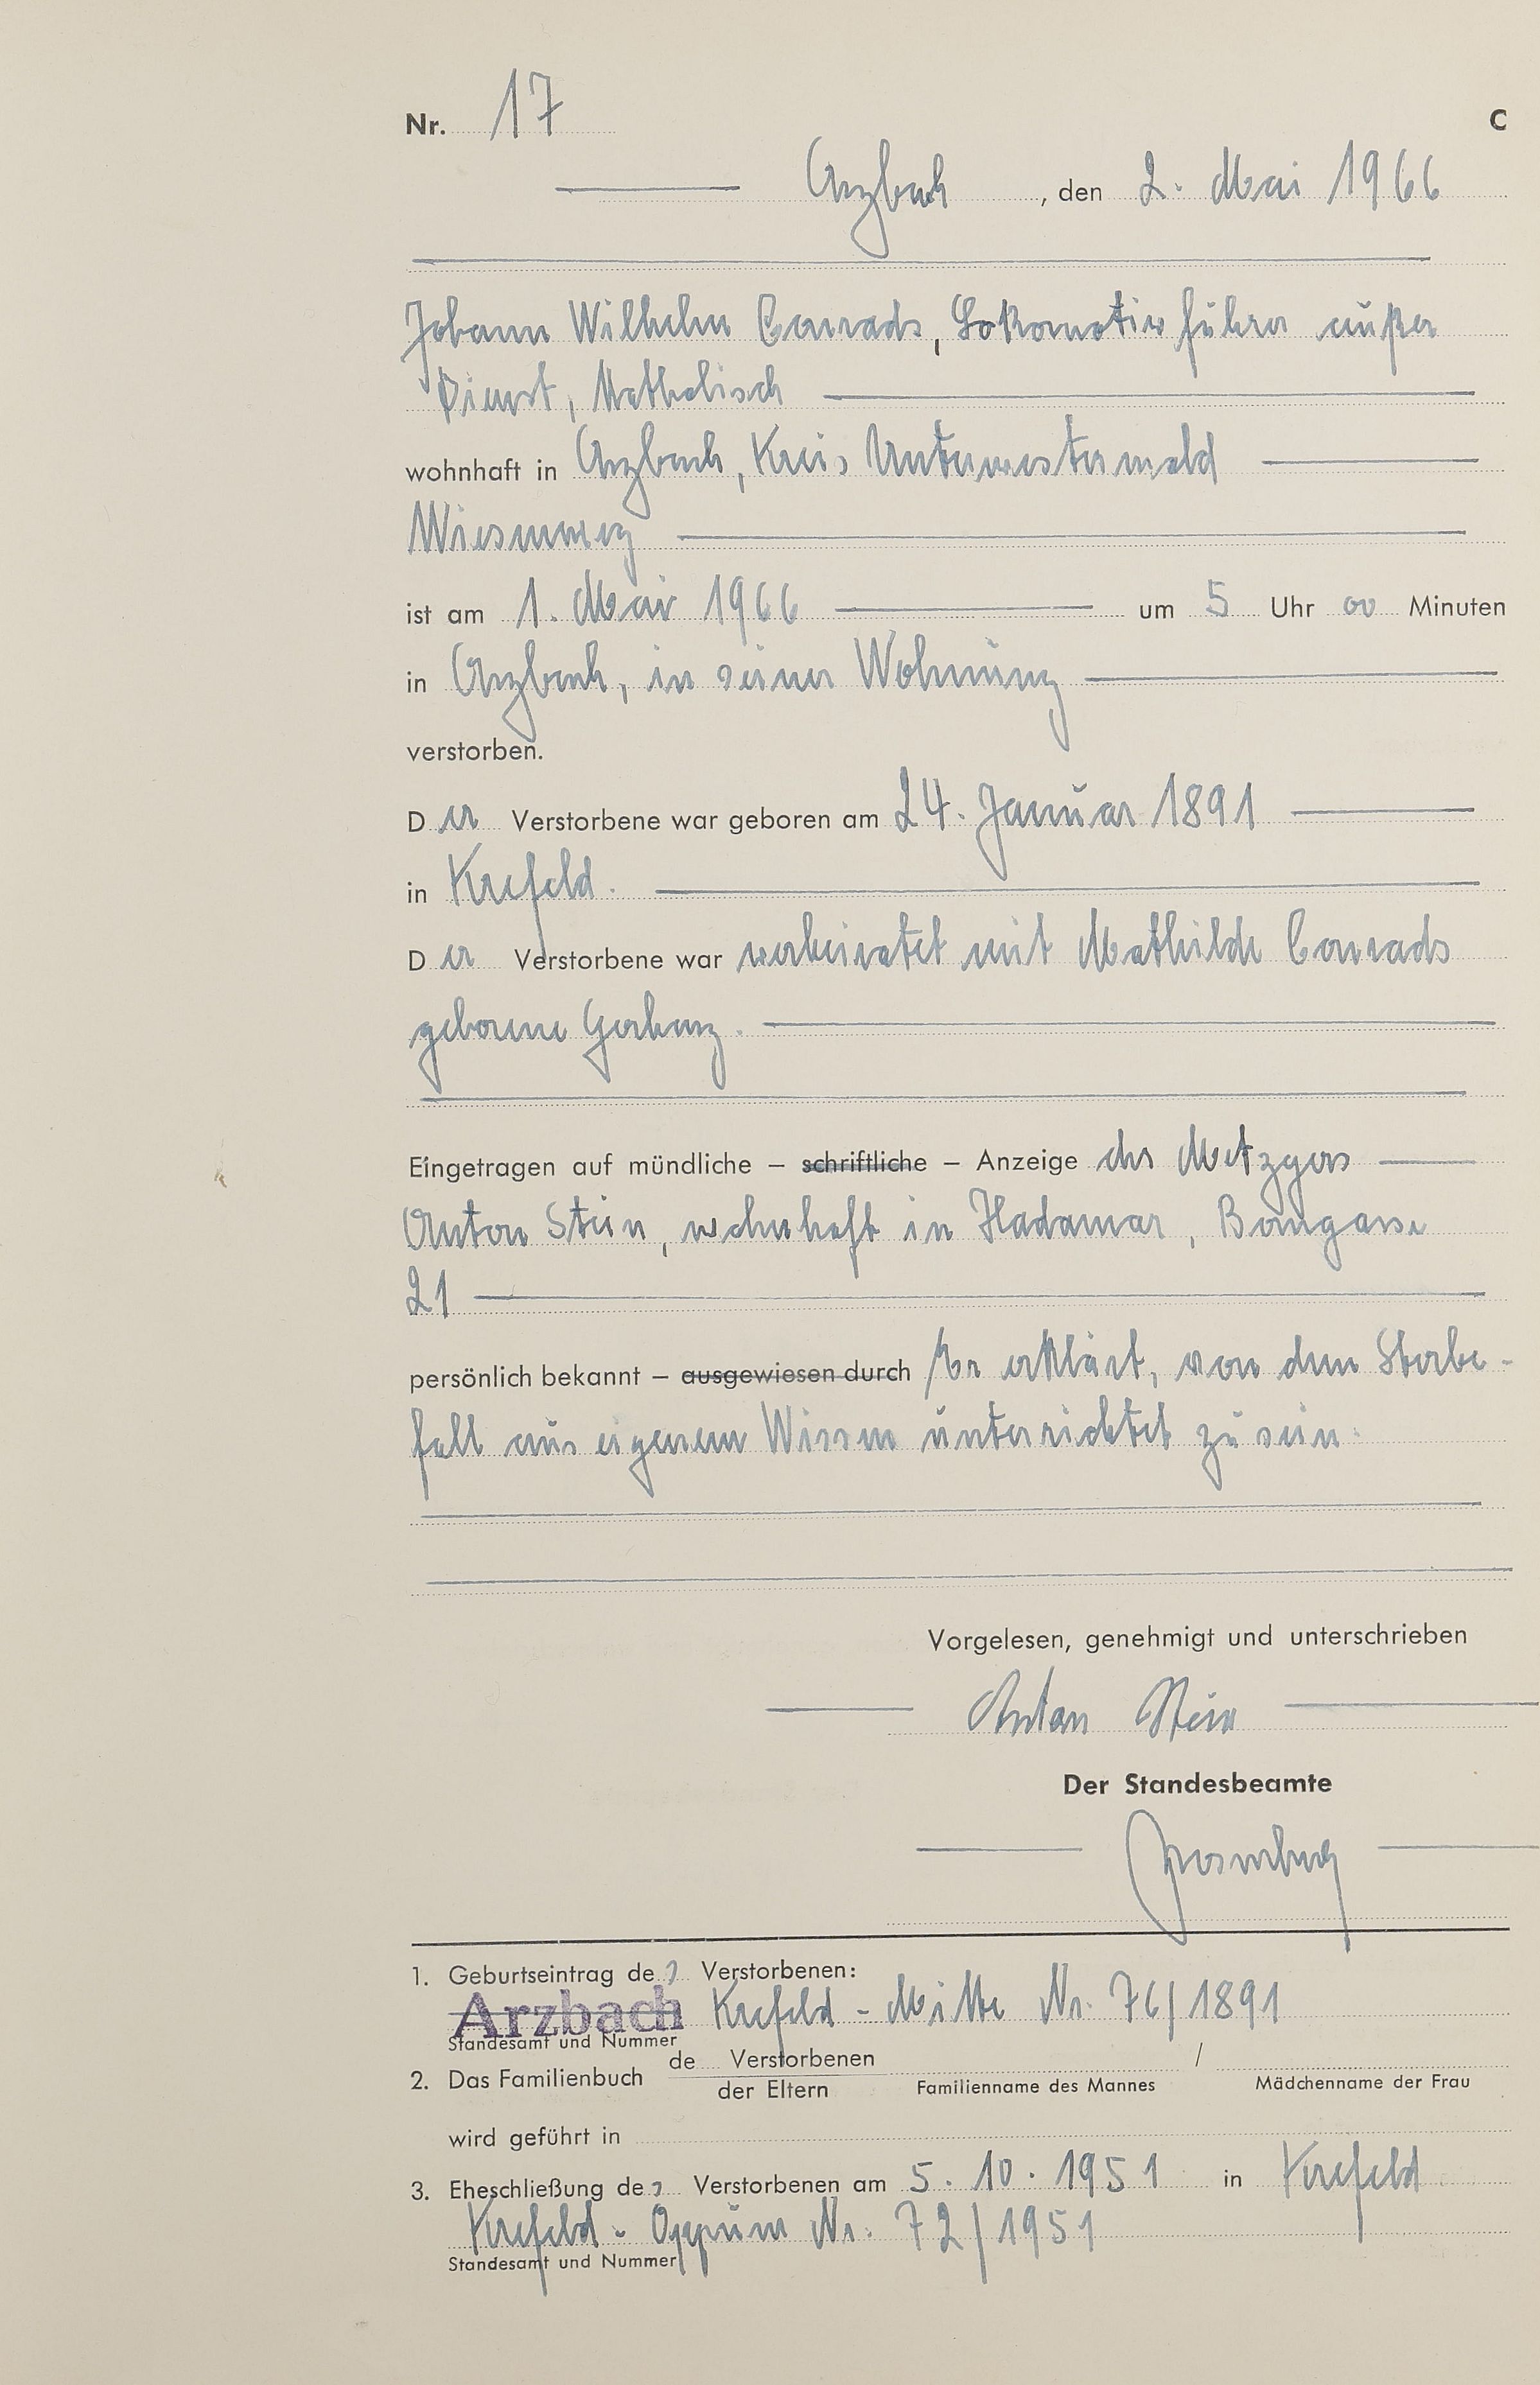 Nr. 17 C
Arzbach, den 2. Mai 1966
Johann Wilhelm Conrads, Lokomotivführer außer
Dienst, katholisch
wohnhaft in Arzbach, Kreis Unterwesterwald
Wiesenweg
ist am 1. Mai 1966 um 5 Uhr 00 Minuten
in Arzbach, in seiner Wohnung
verstorben.
Der Verstorbene war geboren am 24. Januar 1891
in Krefeld.
Der Verstorbene war verheiratet mit Mathilde Conrads
geborene Gerharz.
Eingetragen auf mündliche – schriftliche – Anzeige des Metzgers
Anton Stein, wohnhaft in Hadamar, Borngasse
21
persönlich bekannt – ausgewiesen durch Er erklärt, von dem Sterbe-
fall aus eigenem Wissen unterrichtet zu sein.
Vorgelesen, genehmigt und unterschrieben
Anton Stein
Der Standesbeamte
1. Geburtseintrag des Verstorbenen:
Arzbach Krefeld - Mitte Nr. 76/1891
Standesamt und Nummer
2. Das Familienbuch de Verstorbenen /
der Eltern Familienname des Mannes Mädchenname der Frau
wird geführt in
3. Eheschließung des Verstorbenen am 5. 10. 1951 in Krefeld
Krefeld - Oppum Nr. 72/1951
Standesamt und Nummer